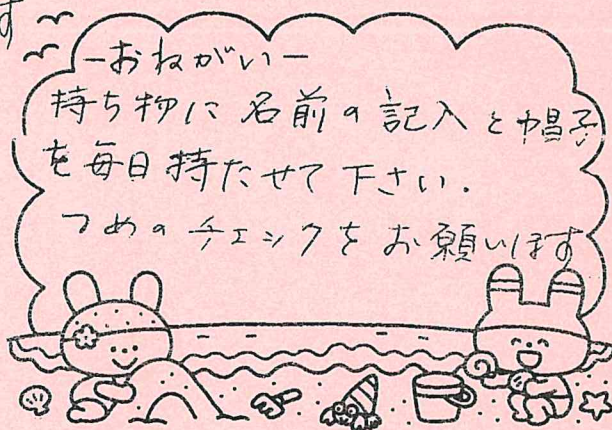 す
ーおねがいー
持ち物に名前の記入と帽子
を毎日持たせて下さい.
つめのチェックをお願いします